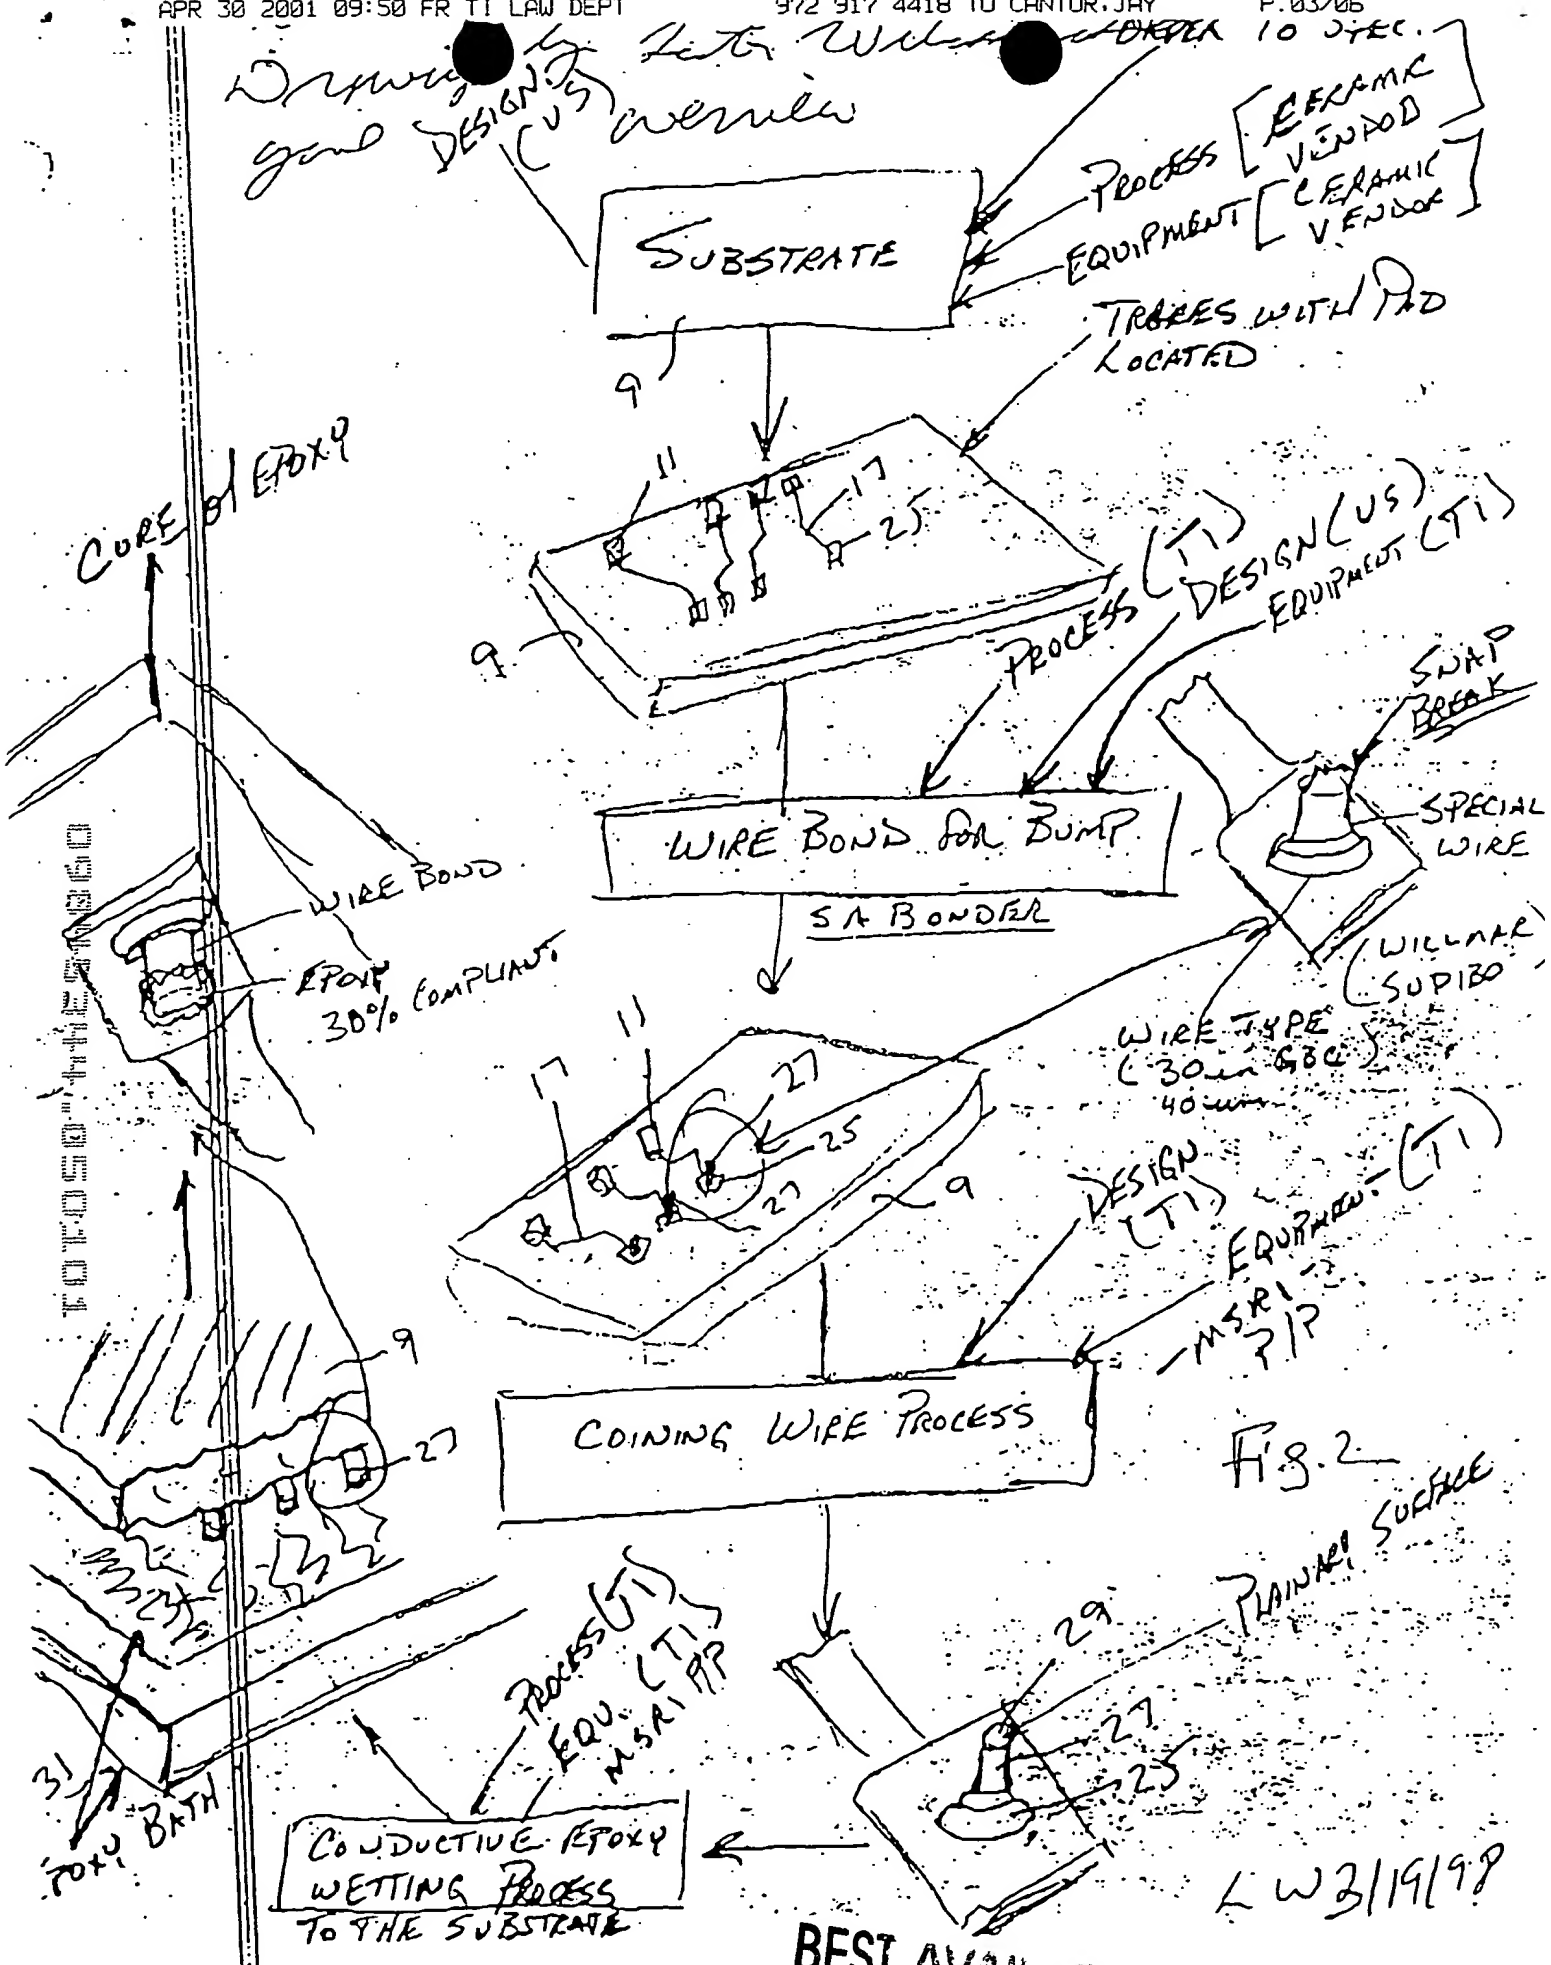 APR 30 2001 09:50 FR TI LAW DEPT 972 917 4418 TO CANTOR.JAY P.03/06
Drawing by
good overview
DESIGN
(US)
ORDER TO SPEC.
PROCESS [CERAMIC
VENDOR]
EQUIPMENT [CERAMIC
VENDOR]
SUBSTRATE
9
TRACES WITH PAD
LOCATED
CURE of EPOXY
11
17
25
9
PROCESS (TI)
DESIGN (US)
EQUIPMENT (TI)
SNAP
BREAK
SPECIAL
WIRE
WIRE BOND FOR BUMP
SA BONDER
WIRE BOND
EPOXY
30% COMPLIANT
(WILLMAR
SUPIBO)
WIRE TYPE
40 um
11
17
27
25
27
9
DESIGN
(TI)
EQUIPMENT (TI)
- MSR1
P/P
9
27
COINING WIRE PROCESS
Fig. 2
PLAINAR SURFACE
PROCESS (TI)
EQU. (TI)
MSR1 P/P
29
27
25
31
EPOXY BATH
CONDUCTIVE EPOXY
WETTING PROCESS
TO THE SUBSTRATE
LW 3/19/98
BEST